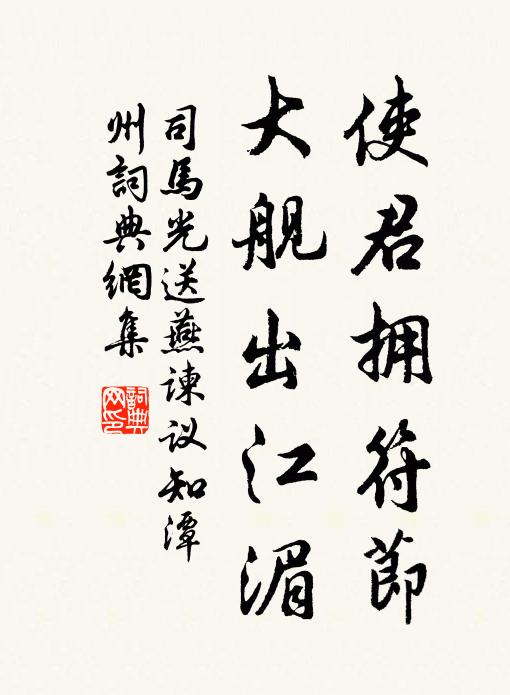 使君拥符節
大舰出江湄
司馬光送燕谏议知潭
州詞典網集
詞典网印